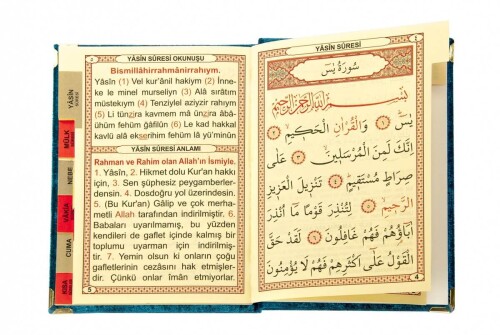 YÂSÎN SÛRESİ OKUNUŞU
Bismillâhirrahmânirrahıym.
Yâsîn (1) Vel kur'ânil hakiym (2) İnne-
ke le minel murseliyn (3) Alâ sırâtım
müstekıym (4) Tenziylel aziyzir rahıym
(5) Li tünzira kavmem mâ ünzira âbâ-
ühüm fehüm ğâfilûn (6) Le kad hakkal
kavlü alâ ekserihim fehüm lâ yü'minûn
YÂSÎN SÛRESİ ANLAMI
Rahman ve Rahim olan Allah'ın İsmiyle.
1. Yâsîn, 2. Hikmet dolu Kur'an hakkı
için, 3. Sen şüphesiz peygamberler-
densin. 4. Dosdoğru yol üzerindesin.
5. (Bu Kur'an) Gâlip ve çok merha-
metli Allah tarafından indirilmiştir. 6.
Babaları uyarılmamış, bu yüzden
kendileri de gaflet içinde kalmış bir
toplumu uyarman için indirilmiş-
tir. 7. Yemin olsun ki onların çoğu
gafletlerinin cezâsını hak etmişler-
dir. Çünkü onlar îman etmiyorlar.
5
YÂSİN
MÜLK
NEBE
VÂKIA
CUMA
KISA
YÂSÎN SÛRESİ
سُورَةُ يٰسٓ
بِسْمِ اللّٰهِ الرَّحْمٰنِ الرَّحِيمِ
يٰسٓ ﴿١﴾ وَالْقُرْاٰنِ الْحَكِيمِ ﴿٢﴾
اِنَّكَ لَمِنَ الْمُرْسَلِينَ ﴿٣﴾ عَلٰى
صِرَاطٍ مُسْتَقِيمٍ ﴿٤﴾ تَنْزِيلَ الْعَزِيزِ
الرَّحِيمِ ﴿٥﴾ لِتُنْذِرَ قَوْمًا مَٓا اُنْذِرَ
اٰبَٓاؤُ۬هُمْ فَهُمْ غَافِلُونَ ﴿٦﴾ لَقَدْ حَقَّ
الْقَوْلُ عَلٰٓى اَكْثَرِهِمْ فَهُمْ لَا يُؤْمِنُونَ
4